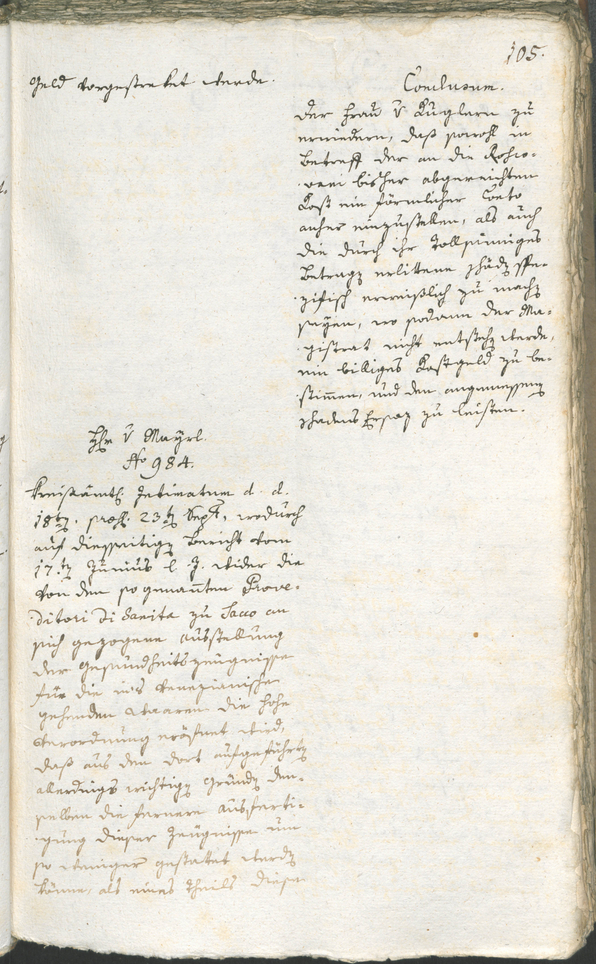 105.
Geld vorgestreket werde.
Conclusum.
Der Frau v Kuglern zu
erwiedern, daß sowohl in
Betreff der an die
bisher abgereichten
Kost ein förmlicher Conto
anher einzustellen, als auch
die durch ihr
Betragen erlittene Schäden spe-
zifisch erweißlich zu machen
seyen, wo sodann der Ma-
gistrat nicht entstehen werde,
ein billiges Kostgeld zu be-
stimmen, und den angemessenen
Schadens Ersaz zu leisten.
Hr v Mayrl.
No 984.
Kreisämtl. Intimatum d. d.
18ten, praes. 23ten Sept, wodurch
auf diesseitigen Bericht vom
17.ten Junius l. J. wider die
von den so genannten Prove-
ditori di Sanita zu Sacco an
sich gezogene Ausstellung
der Gesundheitszeugnisse
für die ins Venezianische
gehenden Waaren die hohe
Verordnung eröfnet wird,
daß aus den dort aufgeführten
allerdings wichtigen Gründen den-
selben die fernere Ausferti-
gung dieser Zeugnisse um
so weniger gestattet werden
könne, als eines Theils diese